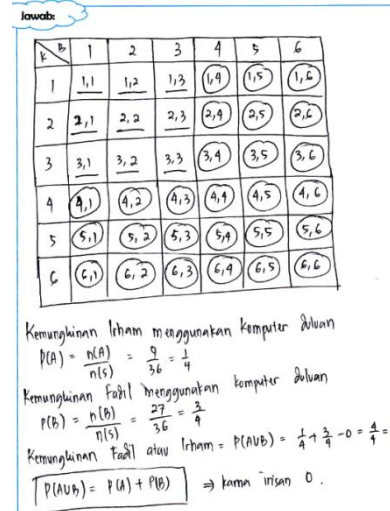 Jawab:
K B 1 2 3 4 5 6
1 1,1 1,2 1,3 1,4 1,5 1,6
2 2,1 2,2 2,3 2,4 2,5 2,6
3 3,1 3,2 3,3 3,4 3,5 3,6
4 4,1 4,2 4,3 4,4 4,5 4,6
5 5,1 5,2 5,3 5,4 5,5 5,6
6 6,1 6,2 6,3 6,4 6,5 6,6
Kemungkinan Irham menggunakan komputer duluan
P(A) = n(A)/n(S) = 9/36 = 1/4
Kemungkinan Fadil menggunakan komputer duluan
P(B) = n(B)/n(S) = 27/36 = 3/4
Kemungkinan Fadil atau Irham = P(AUB) = 1/4 + 3/4 - 0 = 4/4 =
P(AUB) = P(A) + P(B) ⇒ karna irisan 0.